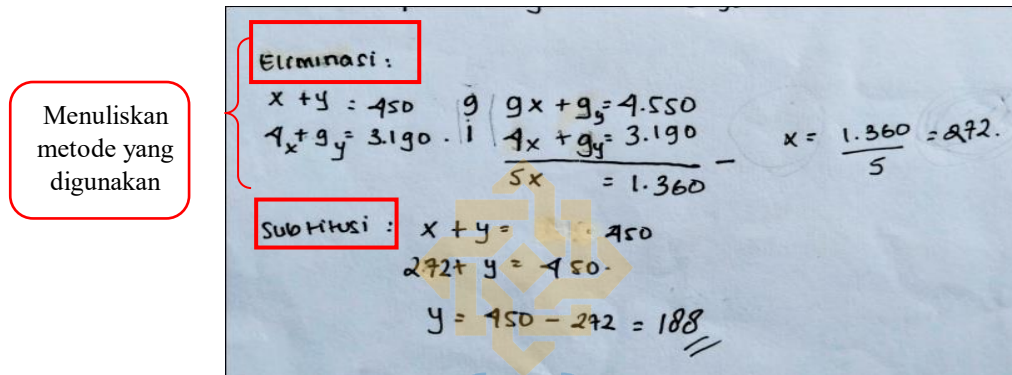 Menuliskan
metode yang
digunakan
Eliminasi :
x + y = 450 | 9 | 9x + 9y = 4.550
4x + 9y = 3.190 . | 1 | 4x + 9y = 3.190 –
5x = 1.360
x = 1.360 / 5 = 272.
Subtitusi : x + y = 450
272 + y = 450.
y = 450 – 272 = 188 //